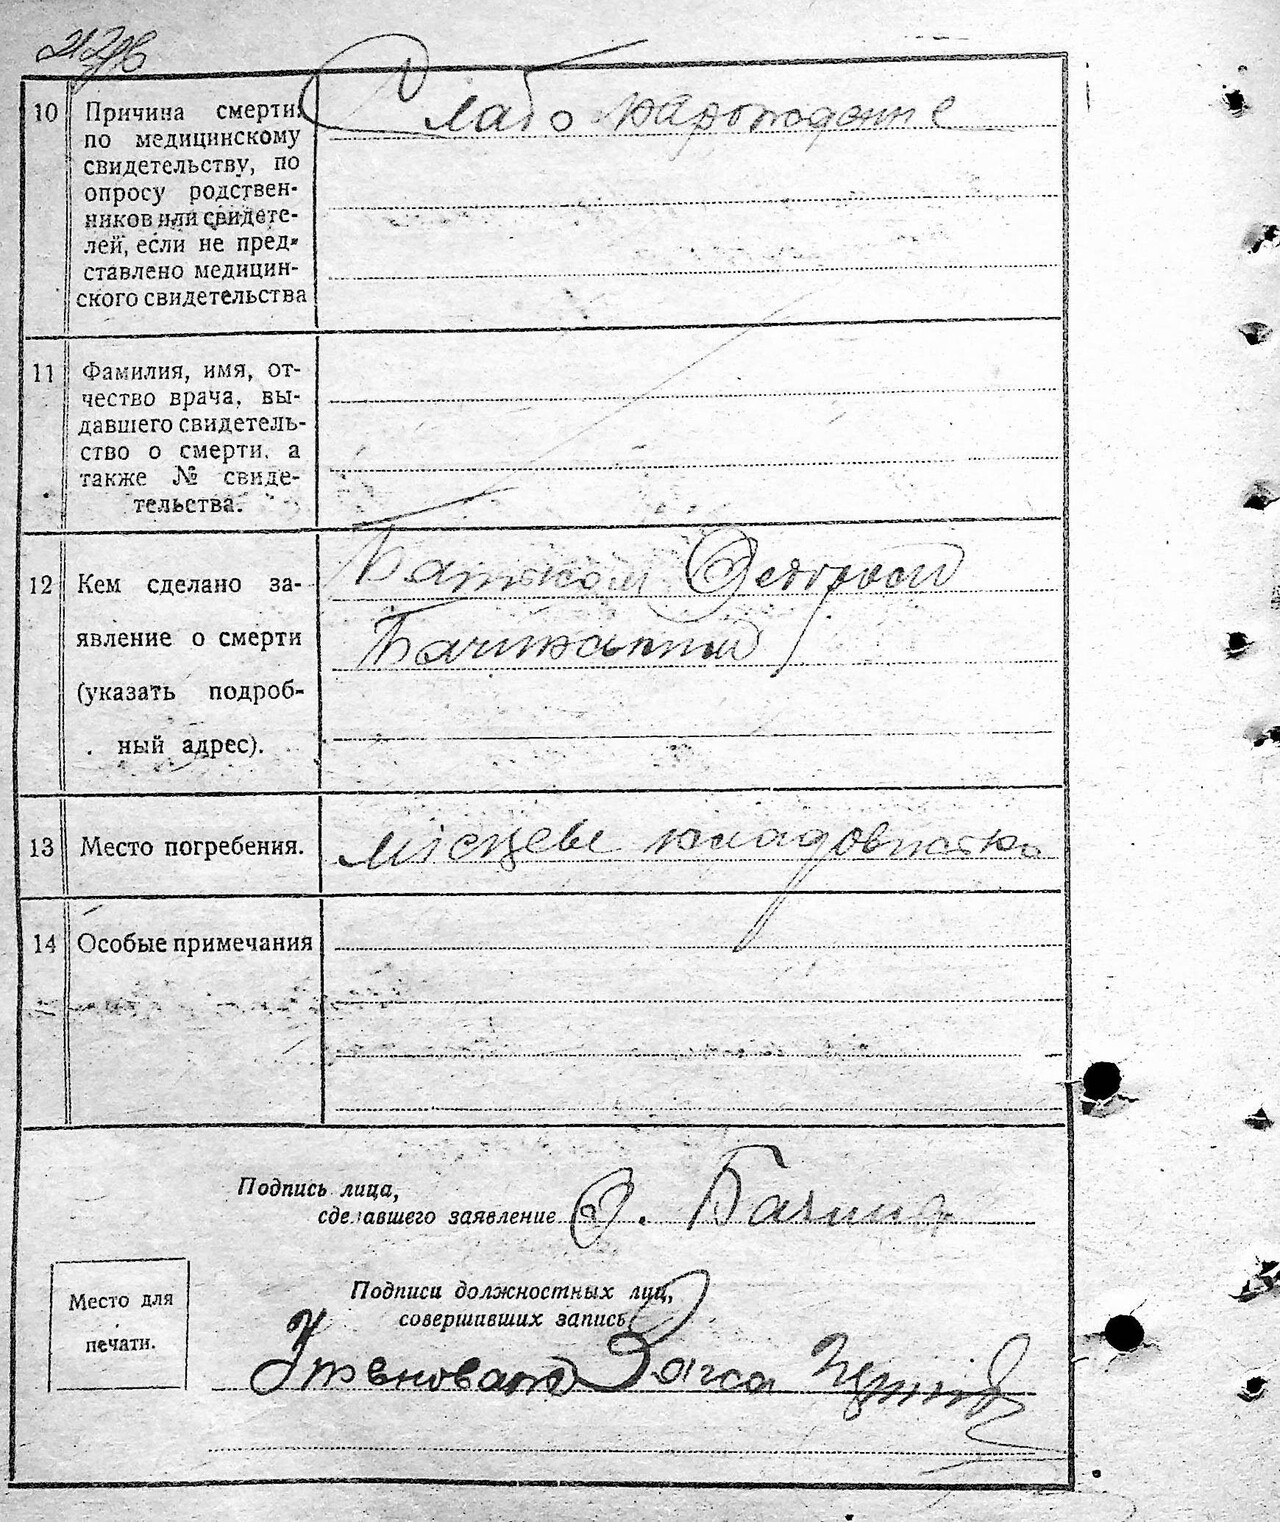 10 Причина смерти,
по медицинскому
свидетельству, по
опросу родствен-
ников или свидете-
лей, если не пред-
ставлено медицин-
ского свидетельства
Слабо нарождение
11 Фамилия, имя, от-
чество врача, вы-
давшего свидетель-
ство о смерти, а
также № свиде-
тельства.
12 Кем сделано за-
явление о смерти
(указать подроб-
ный адрес).
Батьком
13 Место погребения.
місцеве кладовище
14 Особые примечания
Подпись лица,
сделавшего заявление
Подписи должностных лиц,
совершивших запись
Загса
Место для
печати.